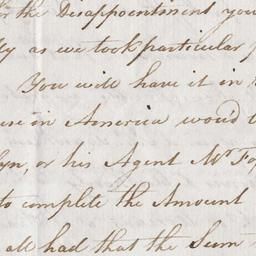 the Disappointment you
as we took particular
You will have it in
in America wou'd
or his Agent Mr
to complete the Amount
all had that the Sum